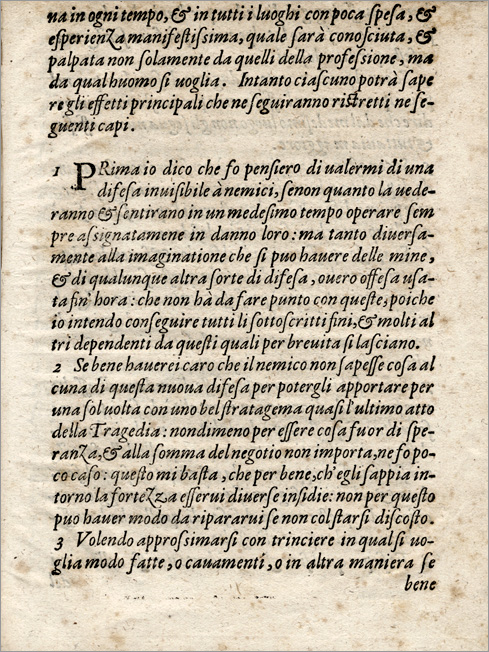 na in ogni tempo, & in tutti i luoghi con poca spesa, &
esperienza manifestissima, quale sarà conosciuta, &
palpata non solamente da quelli della professione, ma
da qual huomo si uoglia. Intanto ciascuno potrà sape
re gli effetti principali che ne seguiranno ristretti ne se-
guenti capi.
1 PRima io dico che fo pensiero di ualermi di una
difesa inuisibile à nemici, senon quanto la uede-
ranno & sentirano in un medesimo tempo operare sem
pre assignatamene in danno loro: ma tanto diuersa-
mente alla imaginatione che si puo hauere delle mine,
& di qualunque altra sorte di difesa, ouero offesa usa-
ta fin' hora: che non hà da fare punto con queste, poiche
io intendo conseguire tutti li sottoscritti fini, & molti al
tri dependenti da questi quali per breuita si lasciano.
2 Se bene hauerei caro che il nemico non sapesse cosa al
cuna di questa nuoua difesa per potergli apportare per
una sol uolta con uno bel stratagema quasi l'ultimo atto
della Tragedia: nondimeno per essere cosa fuor di spe-
ranza, & alla somma del negotio non importa, ne fo po-
co caso: questo mi basta, che per bene, ch'egli sappia in-
torno la fortezza esserui diuerse insidie: non per questo
puo hauer modo da ripararui se non col starsi discosto.
3 Volendo approssimarsi con trinciere in qual si uo-
glia modo fatte, o cauamenti, o in altra maniera se
bene